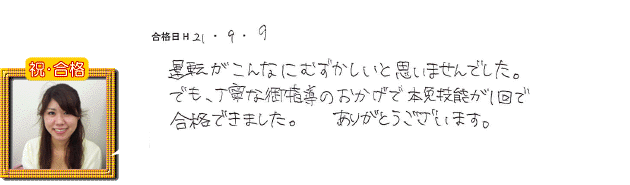 合格日 H 21・9・9
祝・合格
運転がこんなにむずかしいと思いませんでした。
でも、丁寧な御指導のおかげで本免技能が1回で
合格できました。 ありがとうございます。